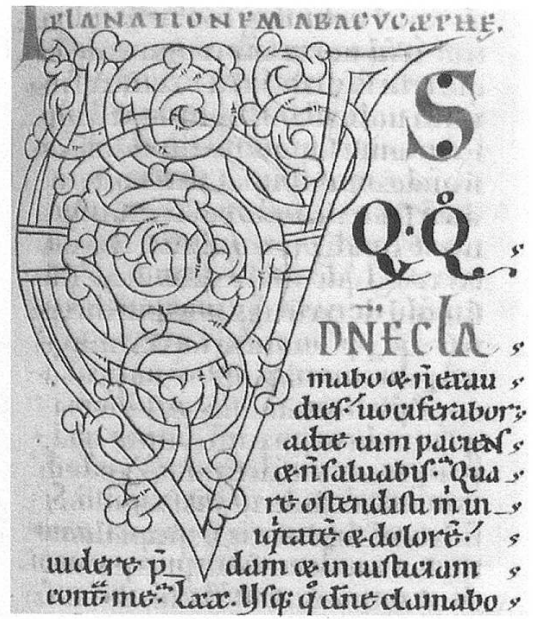 PLANATIONEM ABACVC PPHE.
V S
Q·Q̊
DN̄E CLA
mabo & n̄ exau
dies? uociferabor
ad te uim paciens
& n̄ saluabis? Qua
re ostendisti m̄ in
iq̇tatē & dolorē?
uidere p̄dam & iniusticiam
cont̄ me. Lxx. Vsq; q̊ dn̄e clamabo